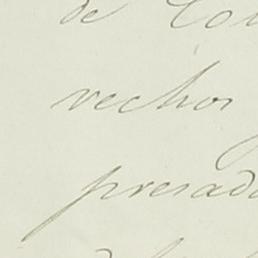 de Co
vechos
presad